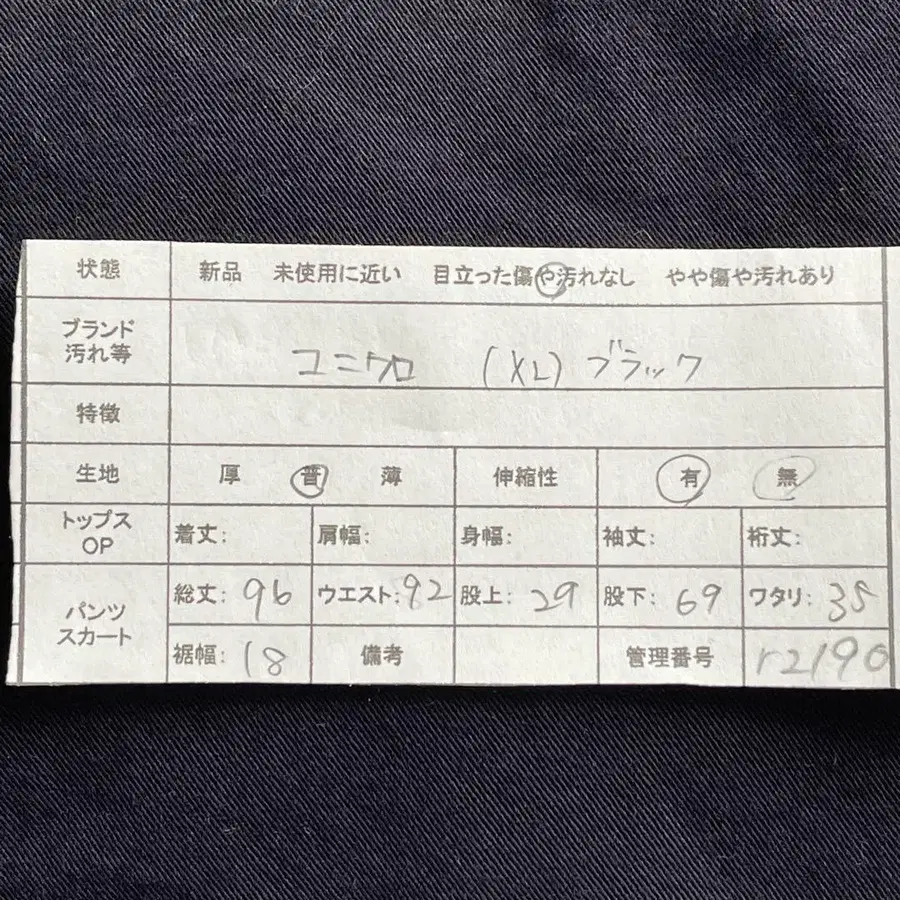 状態 新品 未使用に近い 目立った傷や汚れなし やや傷や汚れあり
ブランド
汚れ等
ユニクロ (XL) ブラック
特徴
生地 厚 普 薄 伸縮性 有 無
トップス
OP
着丈: 肩幅: 身幅: 袖丈: 裄丈:
パンツ
スカート
総丈: 96 ウエスト: 92 股上: 29 股下: 69 ワタリ: 35
裾幅: 18 備考 管理番号 r2190